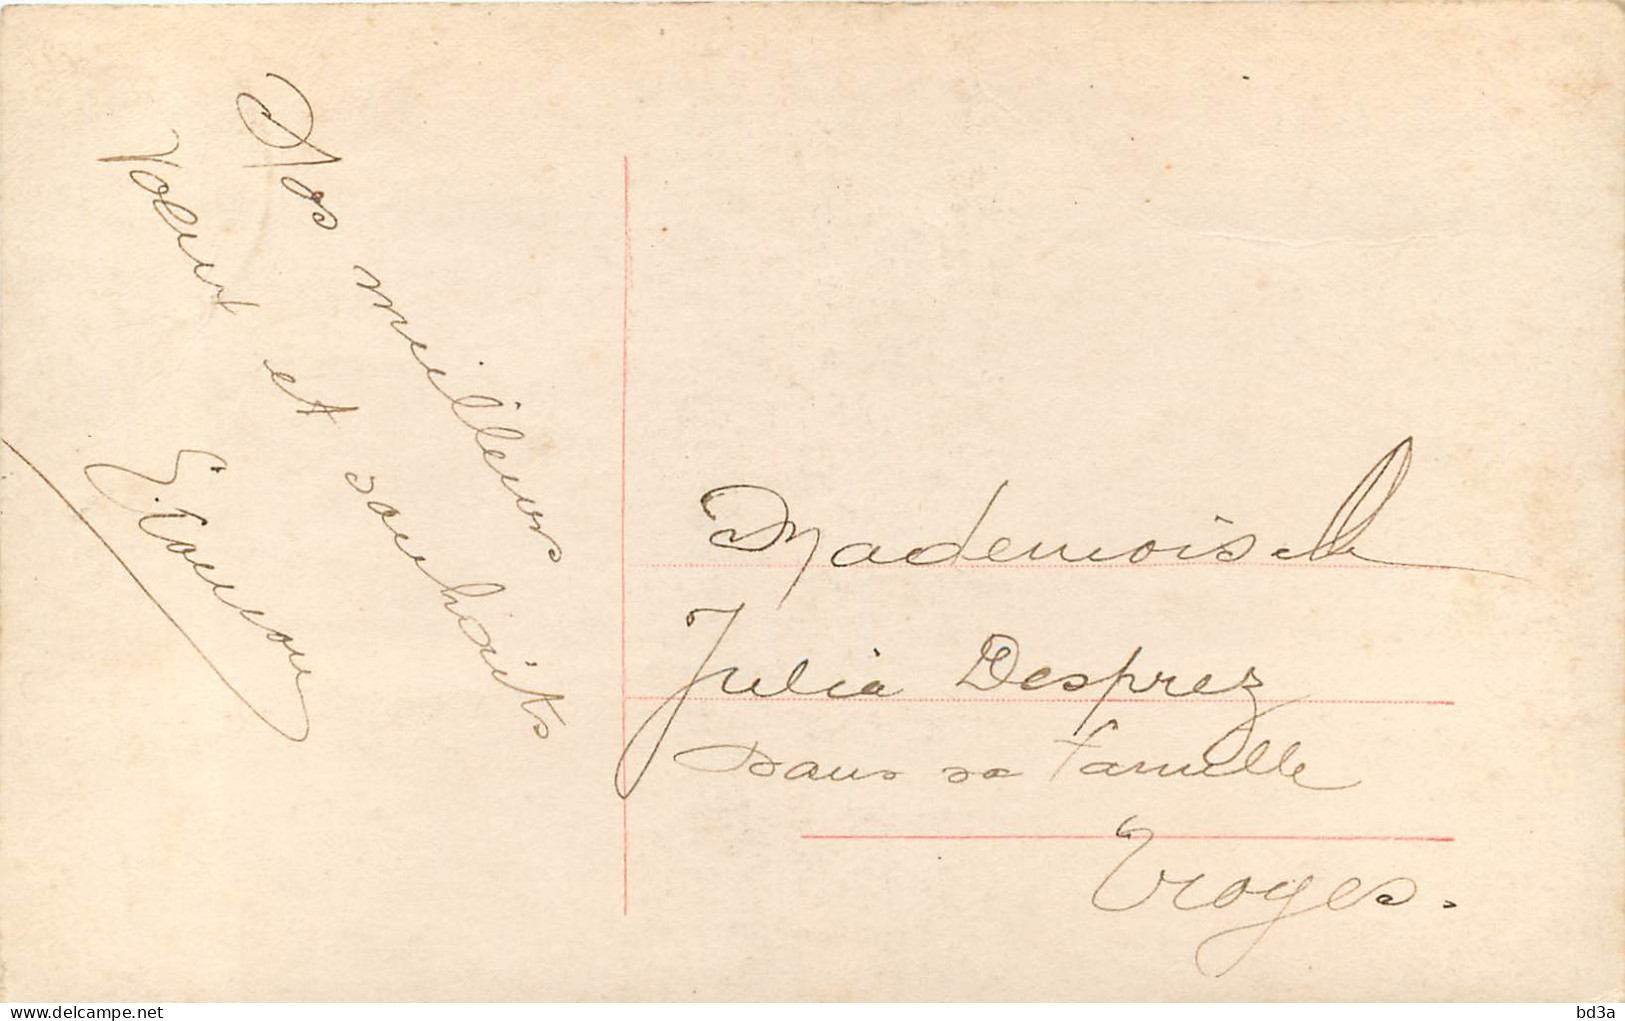 Nos meilleurs
Voeux et souhaits
Mademoiselle
Julia Desprez
dans sa famille
Troyes.
delcampe.net
bd3a